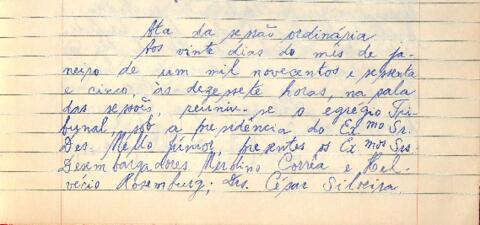 Ata da sessão ordinária
Aos vinte dias do mês de ja-
neiro de um mil novecentos e sessenta
e cinco, às dezessete horas, na sala
das sessões, reuniu-se o egrégio Tri-
bunal sob a presidência do Ex.mo Sr.
Des. Mello Júnior, presentes os Ex.mos Srs.
Desembargadores Merolino Corrêa e Hel-
vécio Rosemburg; Drs. César Silveira,